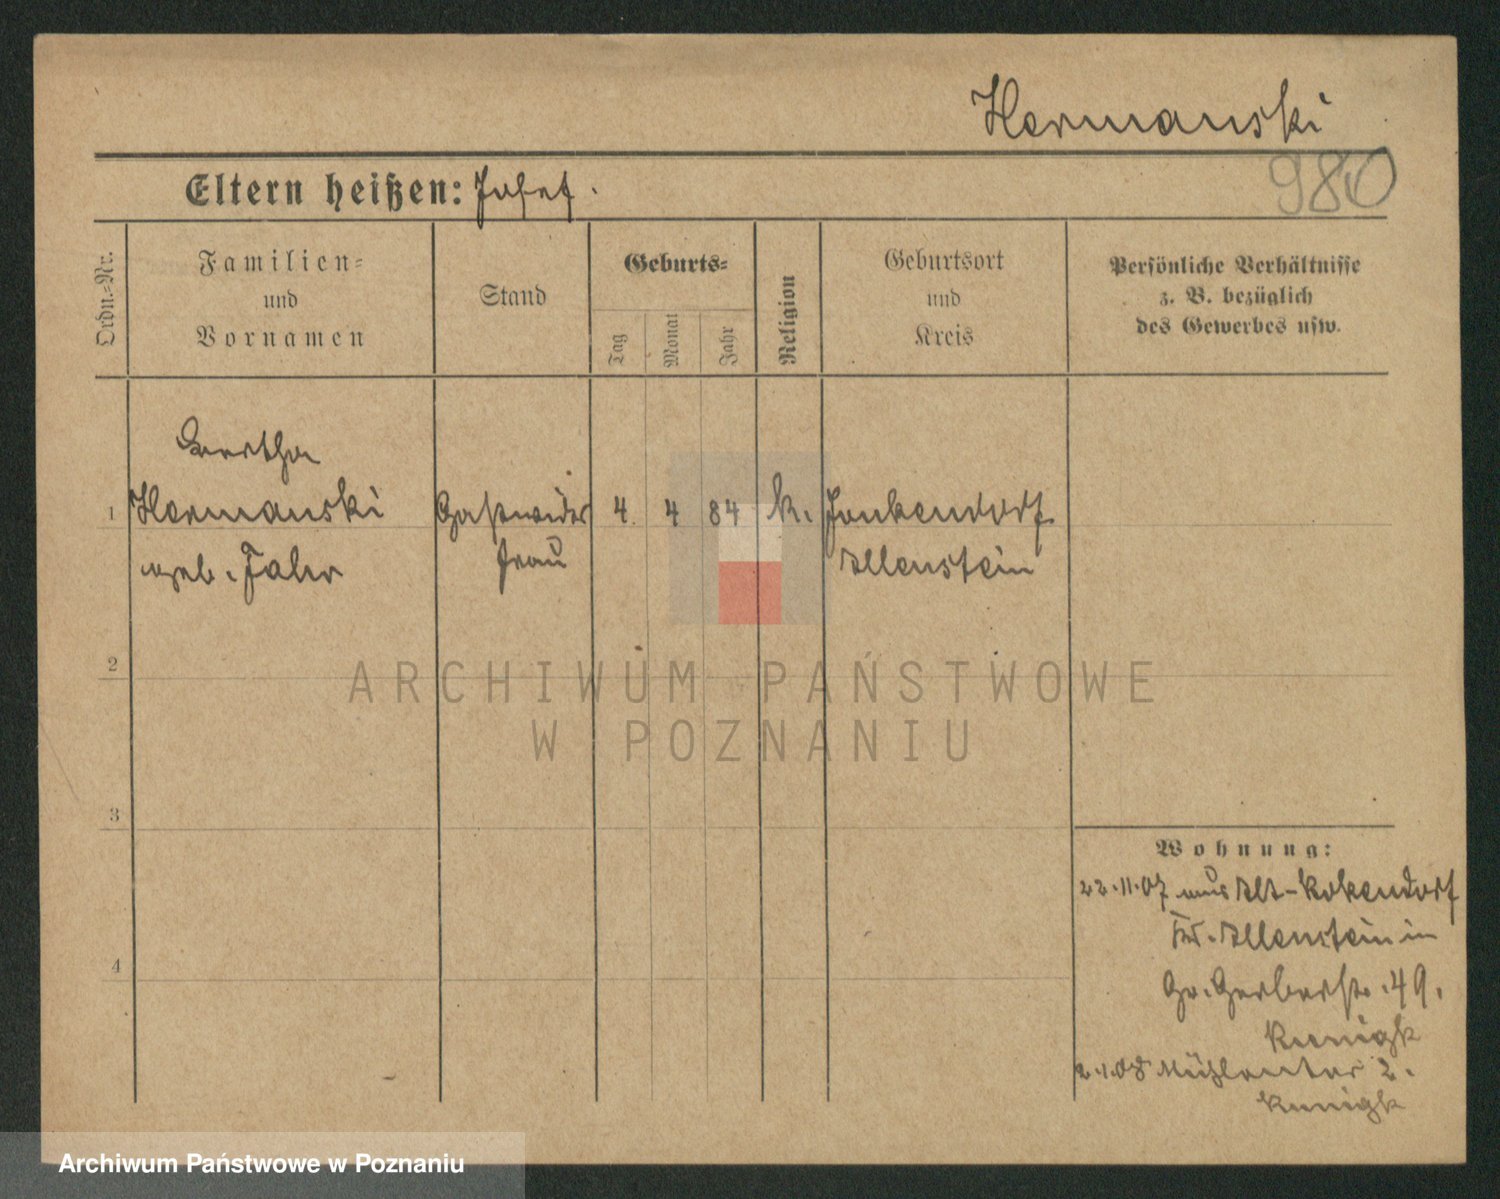 Hermanski
980
Eltern heißen: Josef.
Ordn.-Nr.
Familien-
und
Vornamen
Stand
Geburts-
Tag
Monat
Jahr
Religion
Geburtsort
und
Kreis
Persönliche Verhältnisse
z. B. bezüglich
des Gewerbes usw.
Bertha
1 Hermanski Gastwirts 4. 4 84 k. Jonkendorf
geb. Jahr frau Allenstein
2
3
4
Wohnung:
22.11.07 aus Alt-Kokendorf
Kr. Allenstein in
Gr. Gerberstr. 49.
Kunigk
2.1.08 Mühlentor 2.
Kunigk
ARCHIWUM PAŃSTWOWE
W POZNANIU
Archiwum Państwowe w Poznaniu